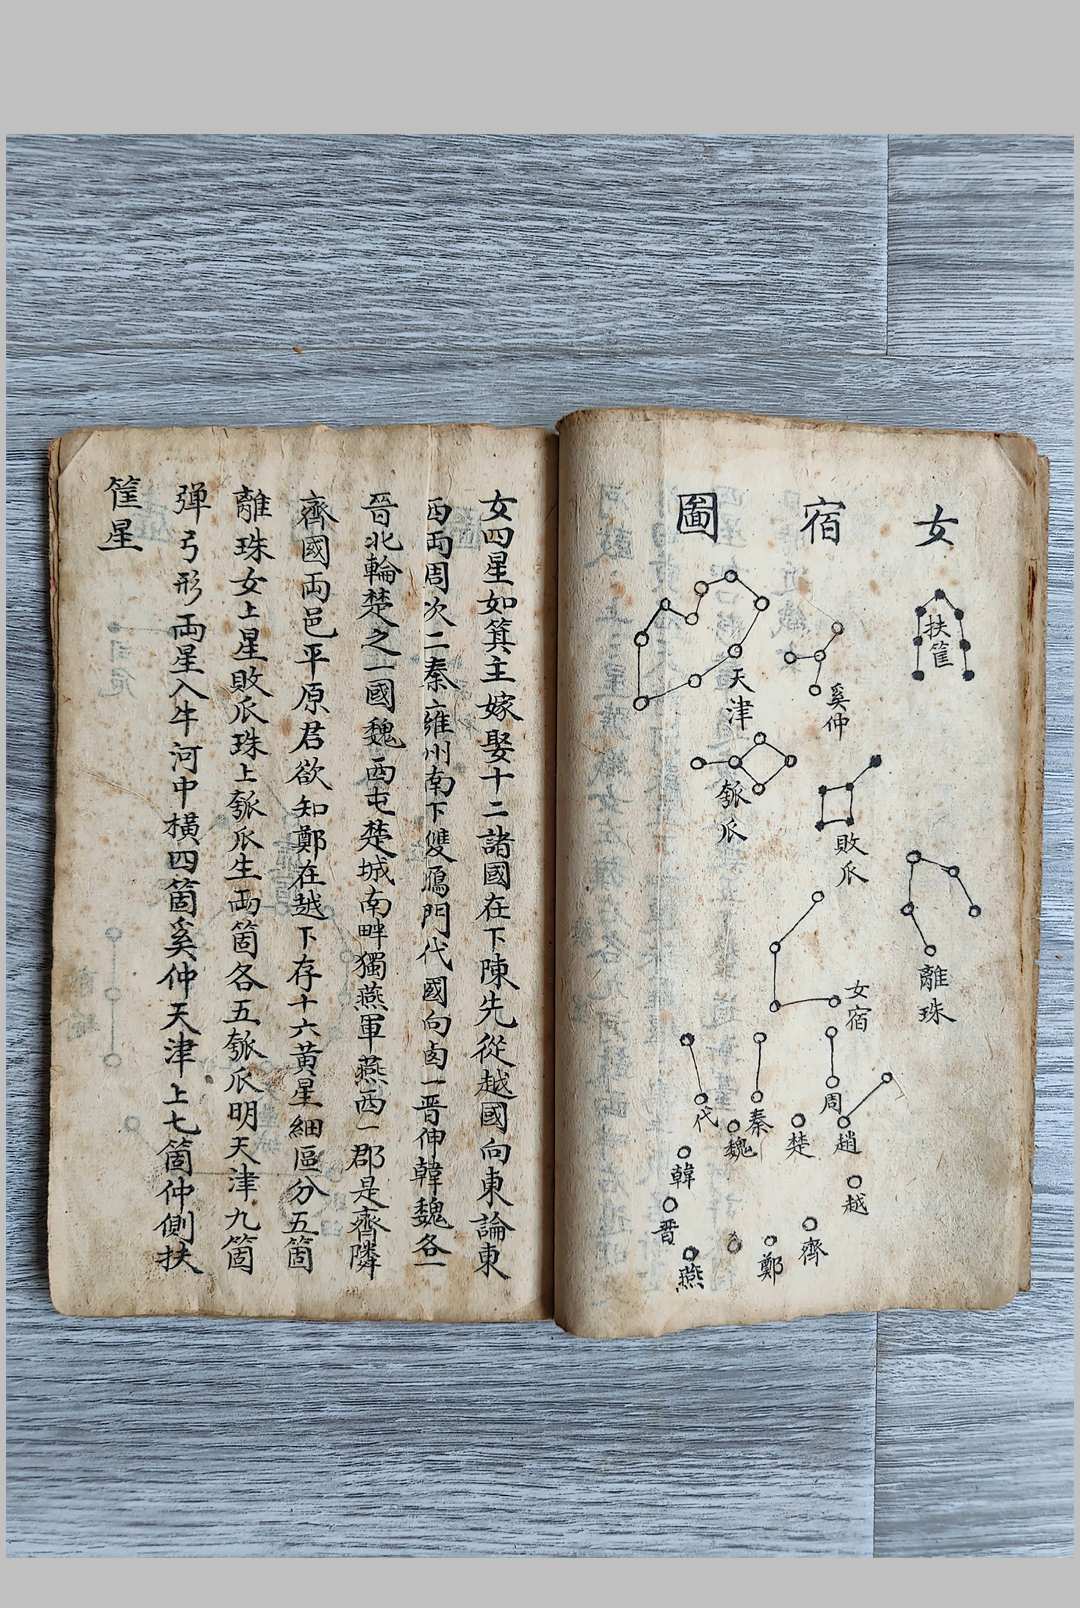 女宿圖
扶筐
奚仲
天津
瓠瓜
敗瓜
離珠
女宿
周
秦
代
趙
楚
魏
韓
越
晉
齊
鄭
燕
女四星如箕主嫁娶十二諸國在下陳先從越國向東論東
西両周次二秦雍州南下雙鴈門代國向西一晉伸韓魏各一
晉北輪楚之一國魏西屯楚城南畔獨燕軍燕西一郡是齊隣
齊國両邑平原君欲知鄭在越下存十六黃星細區分五箇
離珠女上星敗瓜珠上瓠瓜生両箇各五瓠瓜明天津九箇
弹弓形両星入牛河中橫四箇奚仲天津上七箇仲側扶
筐星